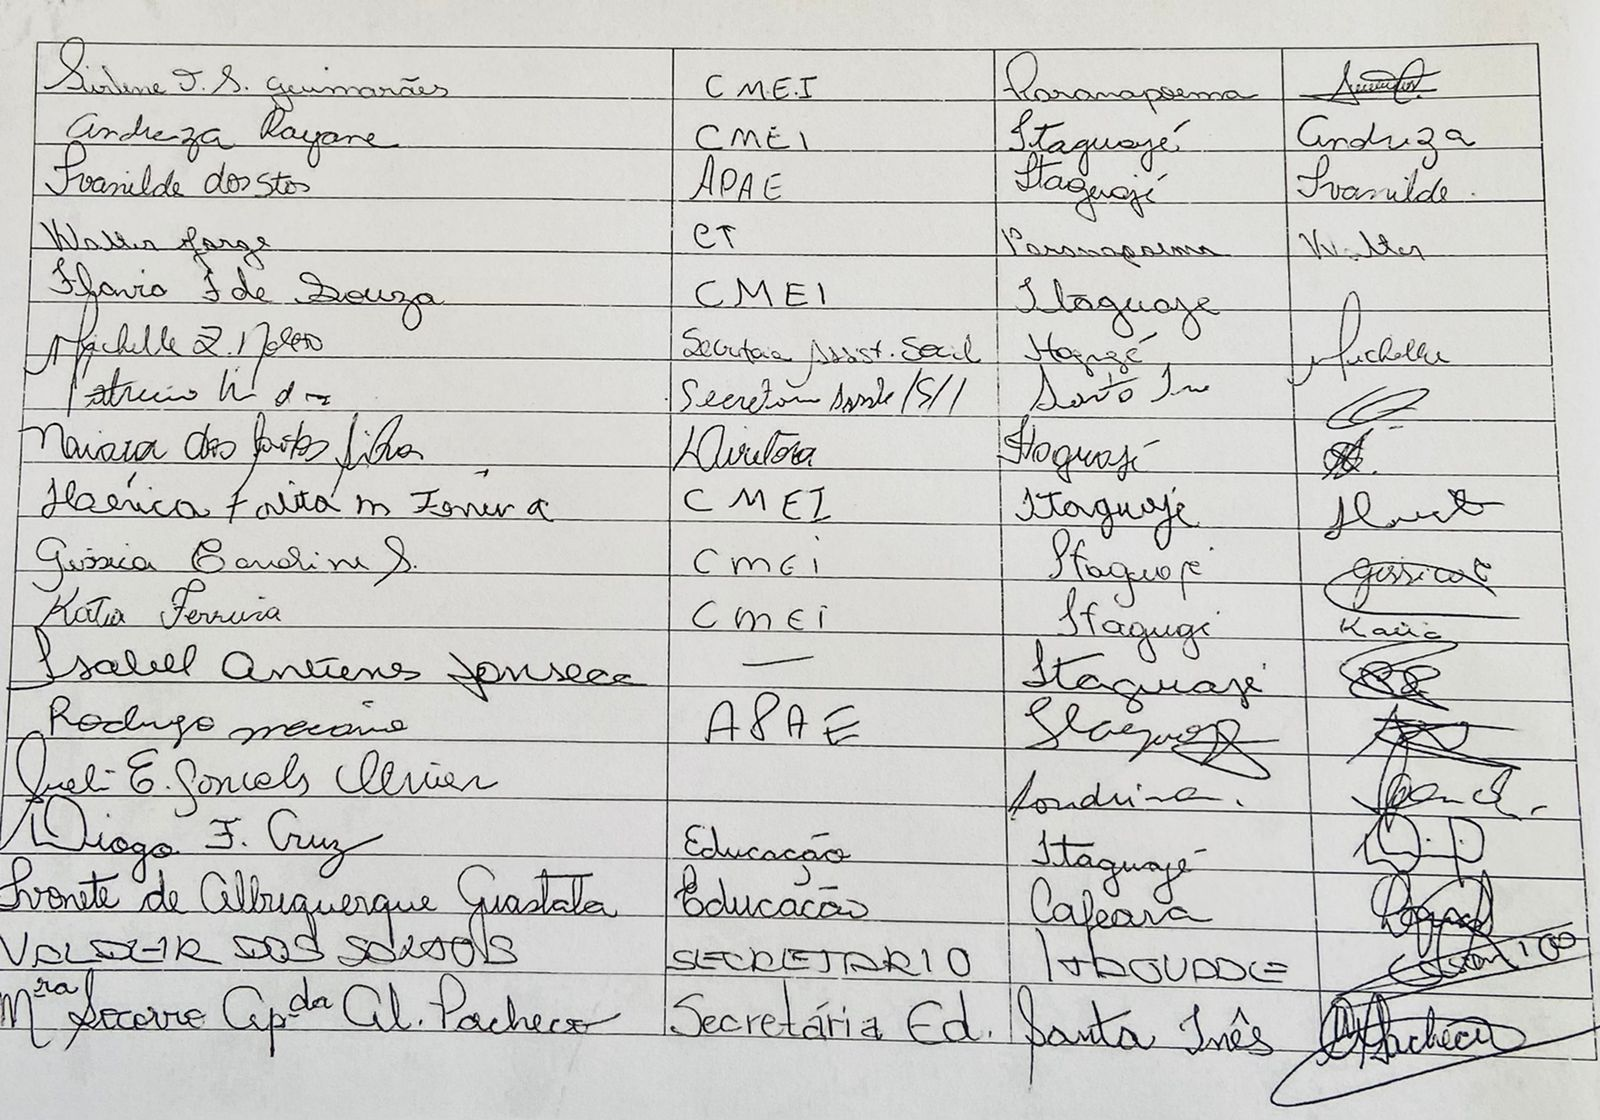 Sirlene J. S. Guimarães CMEI Paranapoema
Andreza Rayane CMEI Itaguajé Andreza
Ivanilde dos Stos APAE Itaguajé Ivanilde.
Walter Jorge CT Paranapoema Walter
Flavia F de Souza CMEI Itaguaje
Michelle Z. Secretaria Assist. Social Michelle
Santo
Naiara dos Santos Silva Diretora Itaguajé
Talita M CMEI Itaguajé
Géssica Caroline S. CMEi Itaguajé Géssica
Katia Ferreira CMEi Itaguajé Katia
Isabell Antunes Fonseca — Itaguajé
Rodrigo APAE
E. Londrina.
Diogo F. Cruz Educação Itaguajé
Ivonete de Albuquerque Guastala Educação Cafeara
VALDEIR DOS SANTOS SECRETARIO ITAGUAJE
Mª Socorro Apda Al. Pacheco Secretária Ed. Santa Inês Pacheco